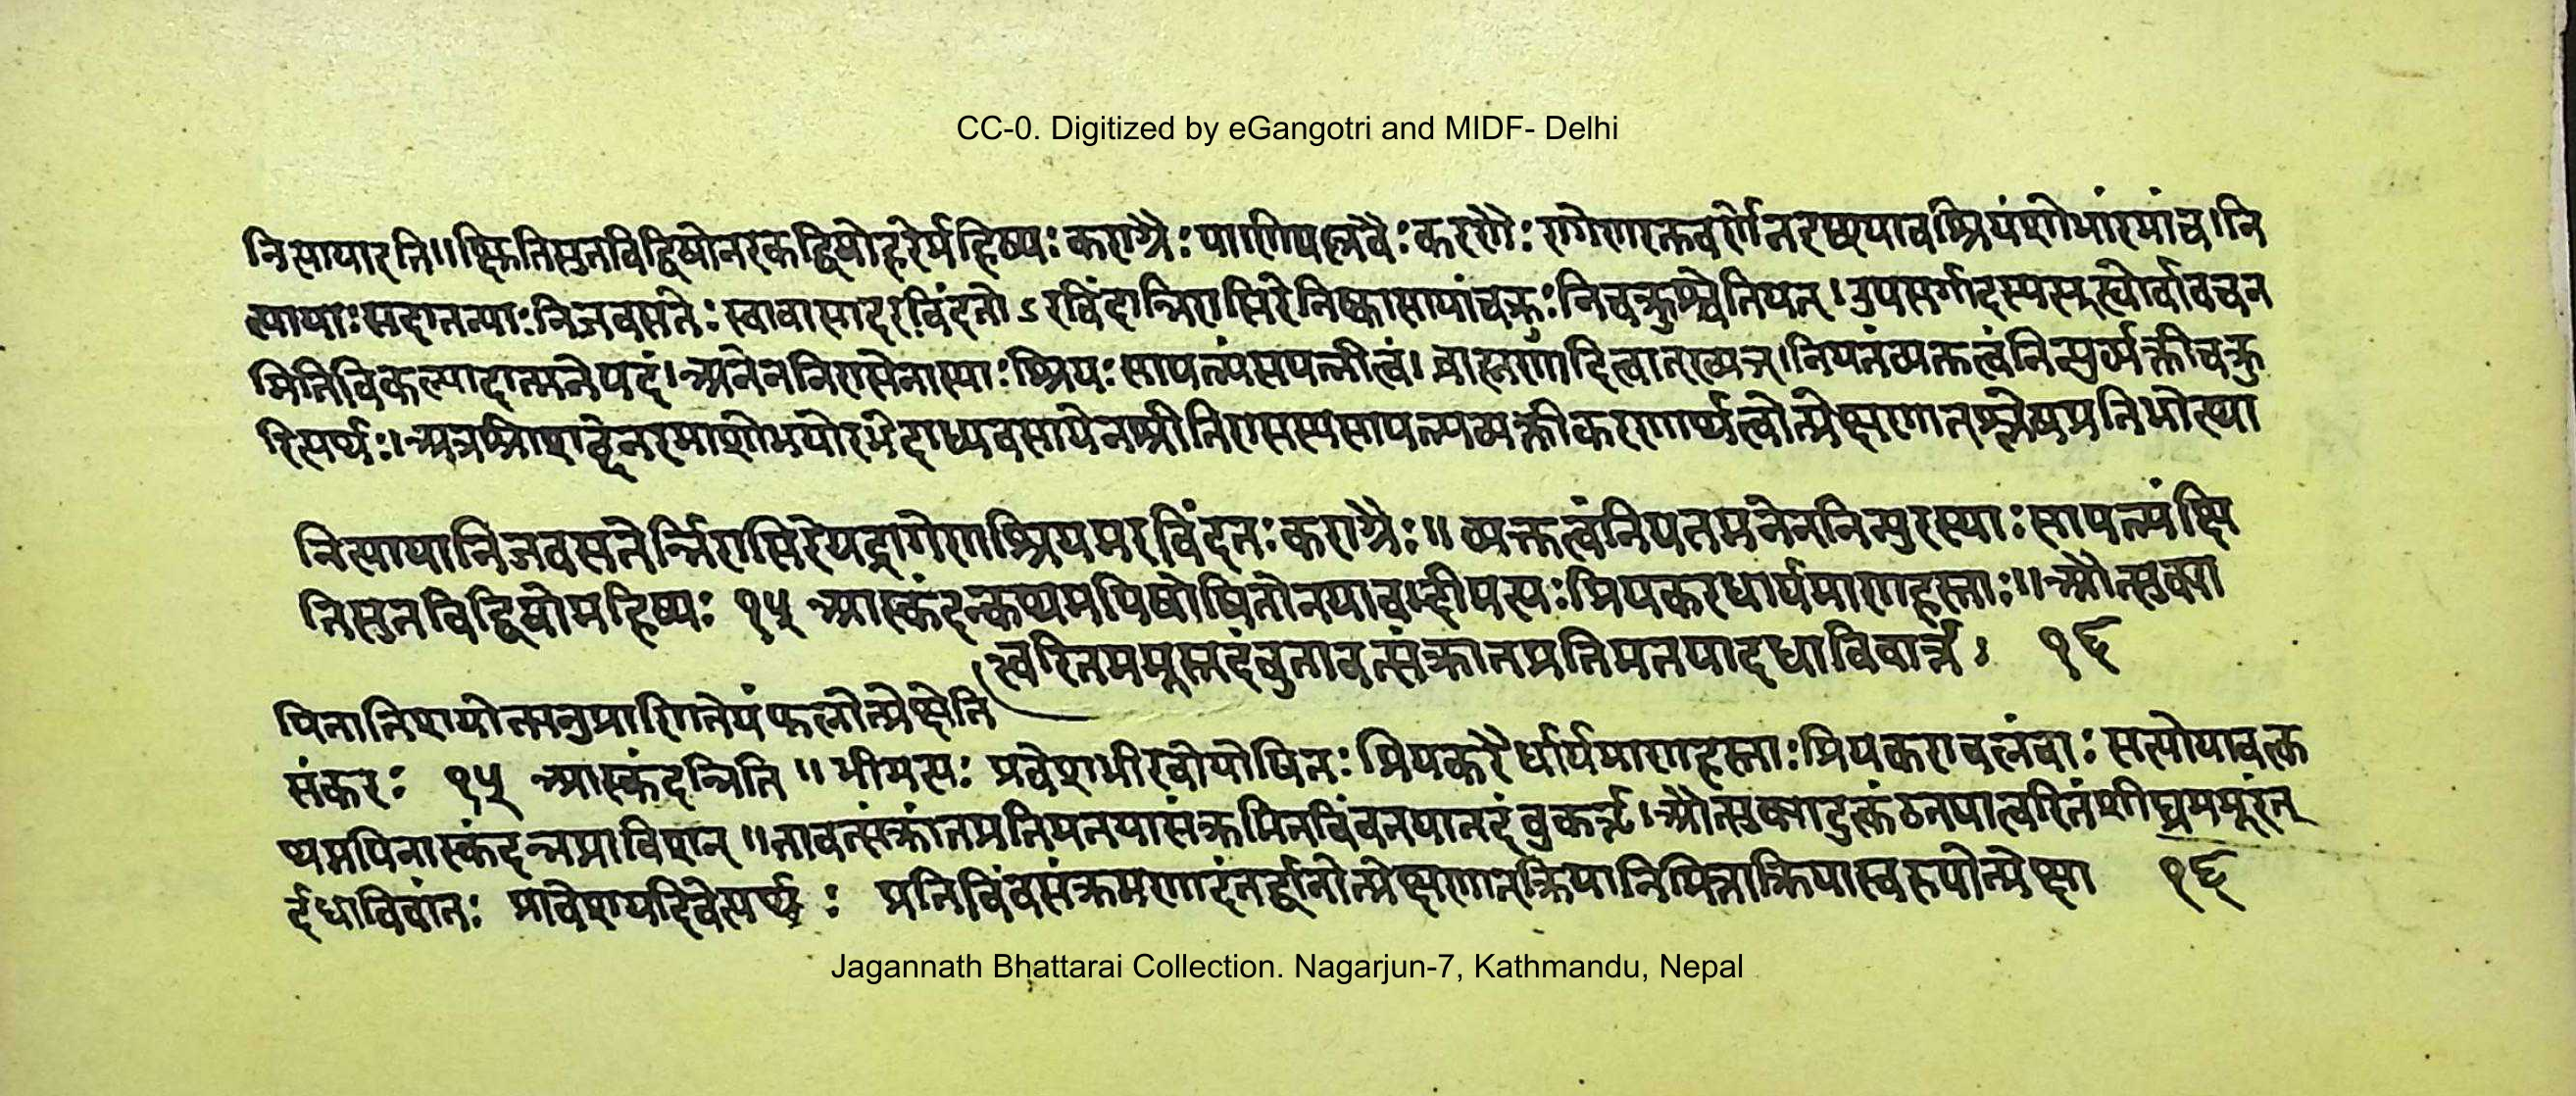 CC-0. Digitized by eGangotri and MIDF- Delhi
नित्यायाइति॥क्षितिसुतविद्विषोनरकद्विषोहरेर्महिष्यः कराग्रैः पाणिपल्लवैः करणैः रागेणरक्तवर्णेनदृष्ट्यायावश्रियंशोभांरमांच।नि
त्यायाः सदातन्याः निजवसतेः स्वावासादरविंदतोऽरविंदान्निरासिरेनिष्कासयांचक्रुः निचक्रुश्चेतियत्।उपसर्गादस्यत्यूह्योर्वावचन
मितिविकल्पादात्मनेपदं।अनेननिरासेनास्याः श्रियः सापत्न्यंसपत्नीत्वं।ब्राह्मणादित्वात्ष्यञ्।नियतंव्यक्तत्वंनिन्युर्व्यक्तीचक्रु
रित्यर्थः।अत्रश्रीशब्देनरमाशोभयोरभेदाध्यवसायेनश्रीनिरासस्यसापत्न्यव्यक्तीकरणार्थत्वोत्प्रेक्षणात्श्लेषप्रतिभोत्था
नित्यायानिजवसतेर्न्निरासिरेयद्रागेणश्रियमरविंदतः कराग्रैः॥व्यक्तत्वंनियतमनेननिन्युरस्याः सापत्न्यंक्षि
तिसुतविद्विषोमहिष्यः १५ आस्कंदन्कथमपियोषितोनयावद्भीमत्यः प्रियकरधार्यमाणहस्ताः॥औत्सुक्या
त्त्वरितममूस्तदंबुतावत्संक्रांतप्रतिमतयादधाविवांतः १६
पितातिशयोक्त्यनुप्राणितेयंफलोत्प्रेक्षेति
संकरः १५ आस्कंदन्निति॥भीमत्यः प्रवेशभीरवोयोषितः प्रियकरैर्धार्यमाणहस्ताः प्रियकरावलंबाः सत्योयावत्क
थमपिनास्कंदन्नप्राविशन्॥तावत्संक्रांतप्रतिमतयासंक्रमितबिंबतयातदंबुकर्तृ।औत्सुक्यादुत्कंठतयात्वरितंशीघ्रममूरंत
र्दधाविवांतः प्रावेशयदिवेत्यर्थः प्रतिबिंबसंक्रमणादंतर्द्धानोत्प्रेक्षणात्क्रियानिमित्ताक्रियास्वरूपोत्प्रेक्षा १६
Jagannath Bhattarai Collection. Nagarjun-7, Kathmandu, Nepal